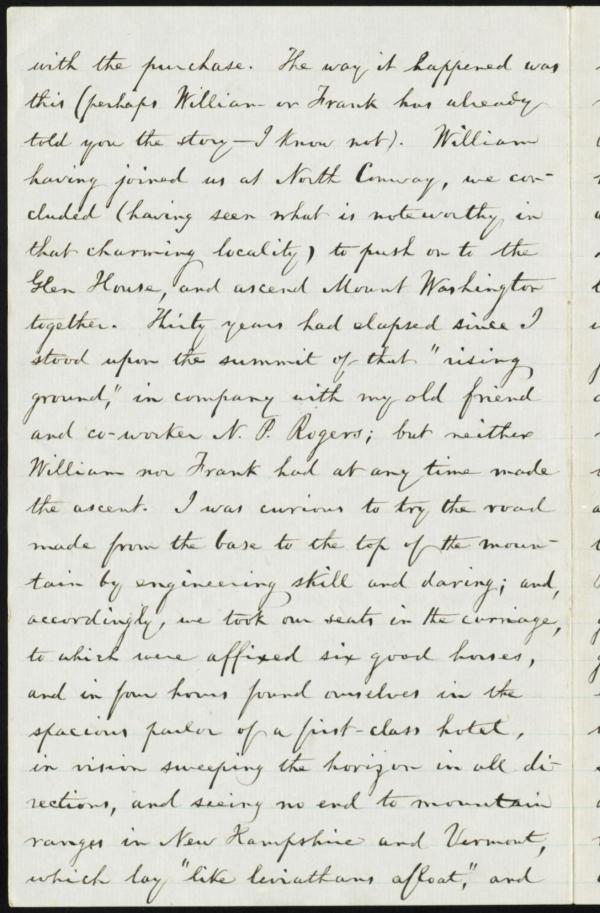 with the purchase. The way it happened was
this (perhaps William or Frank has already
told you the story—I know not). William
having joined us at North Conway, we con-
cluded (having seen what is noteworthy in
that charming locality) to push on to the
Glen House, and ascend Mount Washington
together. Thirty years had elapsed since I
stood upon the summit of that "rising
ground," in company with my old friend
and co-worker N. P. Rogers; but neither
William nor Frank had at any time made
the ascent. I was curious to try the road
made from the base to the top of the moun-
tain by engineering skill and daring; and,
accordingly, we took our seats in the carriage,
to which were affixed six good horses,
and in four hours found ourselves in the
spacious parlor of a first-class hotel,
in vision sweeping the horizon in all di-
rections, and seeing no end to mountain
ranges in New Hampshire and Vermont,
which lay "like leviathans afloat," and